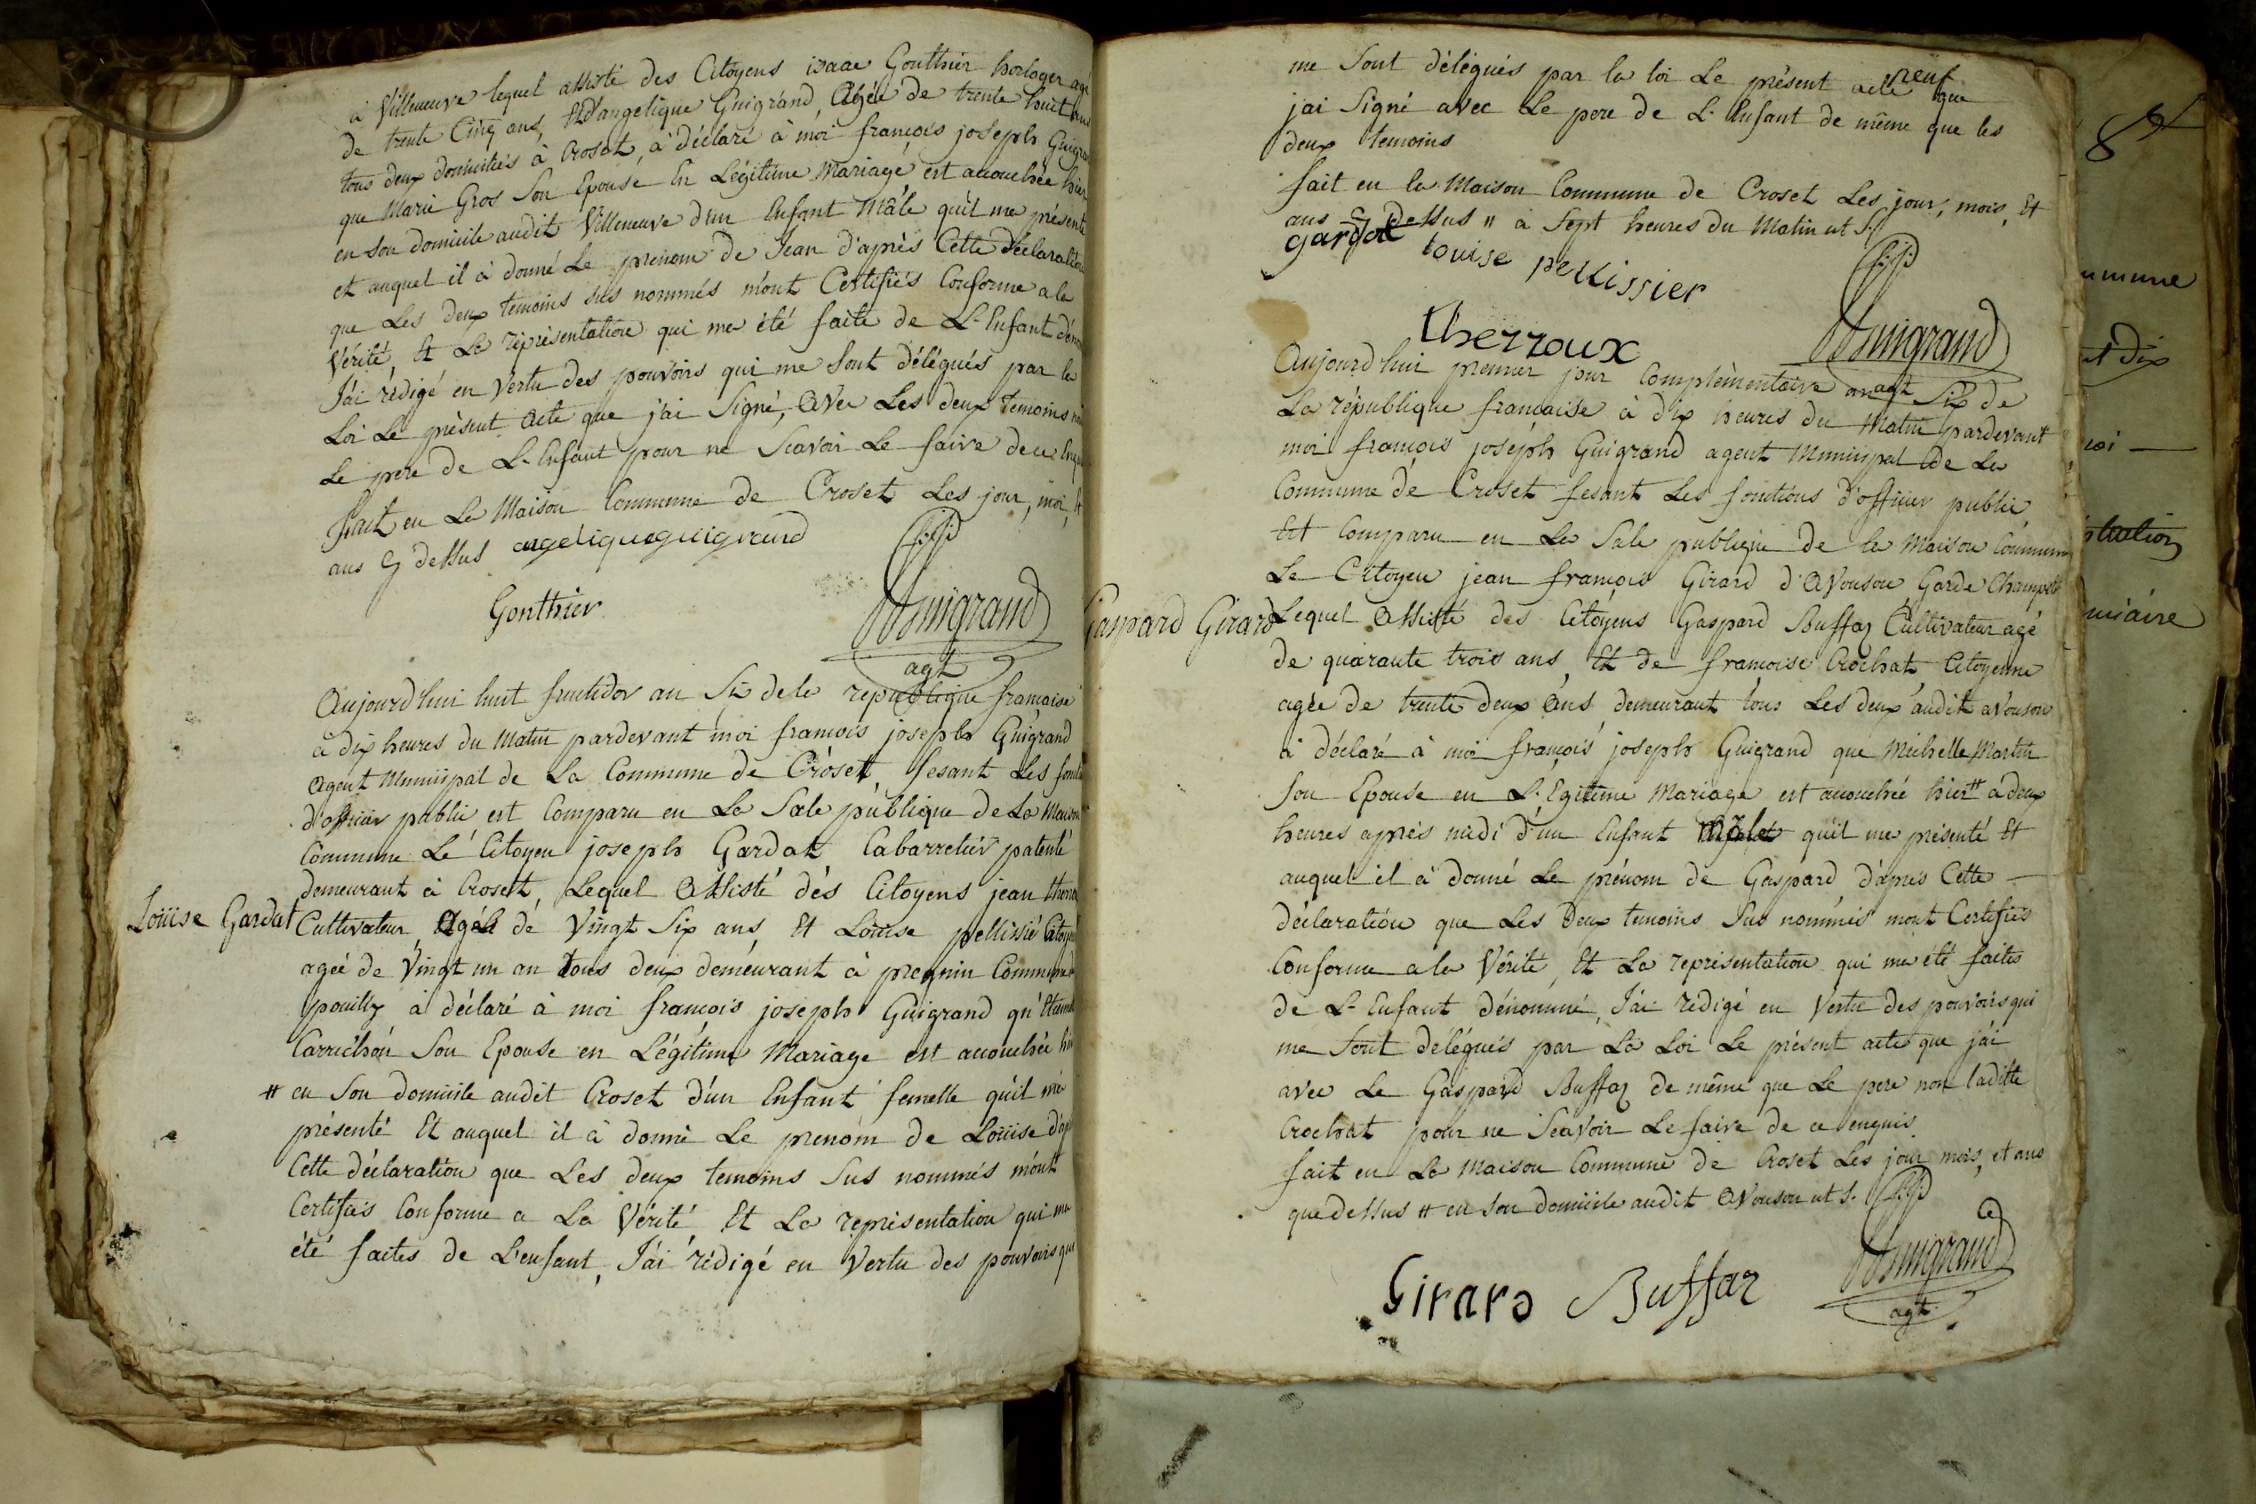 à Villeneuve lequel assisté des Citoyens isaac Gonthier horloger agé
de trente Cinq ans, Et d'angelique Guigrand, Agée de trente huit ans
tous deux domiciliés à Croset, a déclaré à moi françois joseph Guigrand
que Marie Gros Son Epouse En Légitime Mariage est accouchée hier
en son domicile audit Villeneuve d'un Enfant Mâle qu'il me présente
et auquel il à donné Le prenom de Jean d'après Cette déclaration
que Les deux temoins sus nommés m'ont Certifiés Conforme a la
Vérité, Et La réprésentation qui me été faite de L'Enfant dénommé
J'ai rédigé en Vertu des pouvoirs qui me Sont délégués par la
Loi Le présent Acte que j'ai Signé, Avec Les deux temoins
Le pere de L'Enfant pour ne Scavoir Le faire de ce
fait en La Maison Commune de Croset Les jour, moi, Et
ans Cy dessus angelique guigrand
Gonthier
Guigrand
agt
Aujourd'hui huit fructidor an Six de la republique française
à dix heures du Matin pardevant moi françois joseph Guigrand
Agent Municipal de La Commune de Croset, fesant Les
d'officier public est Comparu en La Sale publique de La Maison
Commune Le Citoyen joseph Gardat, Cabarretier patenté
demeurant à Croset, Lequel Assisté dés Citoyens jean
Louise Gardat
Cultivateur, Agée de Vingt Six ans, Et Louise pellissié
ageé de Vingt un an tous deux deméurant à pregnin Commune
pouilly à déclaré à moi françois joseph Guigrand
Carrichon Son Epouse en Légitime Mariage est accouchée
# en Son domicile audit Croset d'un Enfant femelle qu'il me
présenté Et auquel il à donné Le prenom de Louise
Cette déclaration que Les deux temoins Sus nommés m'ont
Certifiés Conforme a La Vérité Et La représentation qui ma
été faites de L'enfant, J'ai rédigé en Vertu des pouvoirs qui
neuf
me Sont délégués par la loi Le présent acte que
j'ai Signé avec Le pere de L'Enfant de même que les
deux temoins
fait en la Maison Commune de Croset Les jour, mois, Et
ans Cy dessus # à Sept heures du Matin ut S.
gardat Louise pellissier
therroux
Guigrand
agt
Aujourd'hui premier jour Complémentaire an Six de
La république francaise à dix heures du Matin pardevant
moi françois joséph Guigrand agent Municipal de La
Commune de Croset fesant Les fonctions d'officier public
Est Comparu en La Sale publique de la Maison Commune
Le Citoyen jean françois Girard d'Avouson Garde Champetre
Gaspard Girard
Lequel Assisté des Citoyens Gaspard Buffaz Cultivateur agé
de quarante trois ans, Et de françoise Crochat, Citoyenne
agée de trente deux Ans, demeurant tous Les deux audit avouson
à déclaré à moi françois joseph Guigrand que Michelle Martin
Son Epouse en L'Egitime Mariage est accouchée hier # a deux
heures aprés midi d'un Enfant Mâle qu'il me présenté Et
auquel il à donné Le prénom de Gaspard d'après Cette
déclaration que Les Deux temoins Sus nommés m'ont Certifiés
Conforme a la Vérité, Et La représentation qui m'a été faites
de L'Enfant dénommé, J'ai rédigé en Vertu des pouvoirs qui
me Sont délégués par La Loi Le présent acte que j'ai
avec Le Gaspard Buffaz de même que Le pere non laditte
Crochat pour ne Scavoir Le faire de ce enquis
fait en La Maison Commune de Croset Les jour mois, et ans
que dessus # en son domicile audit Avouson ut S.
Girard Buffaz
Guigrand
agt